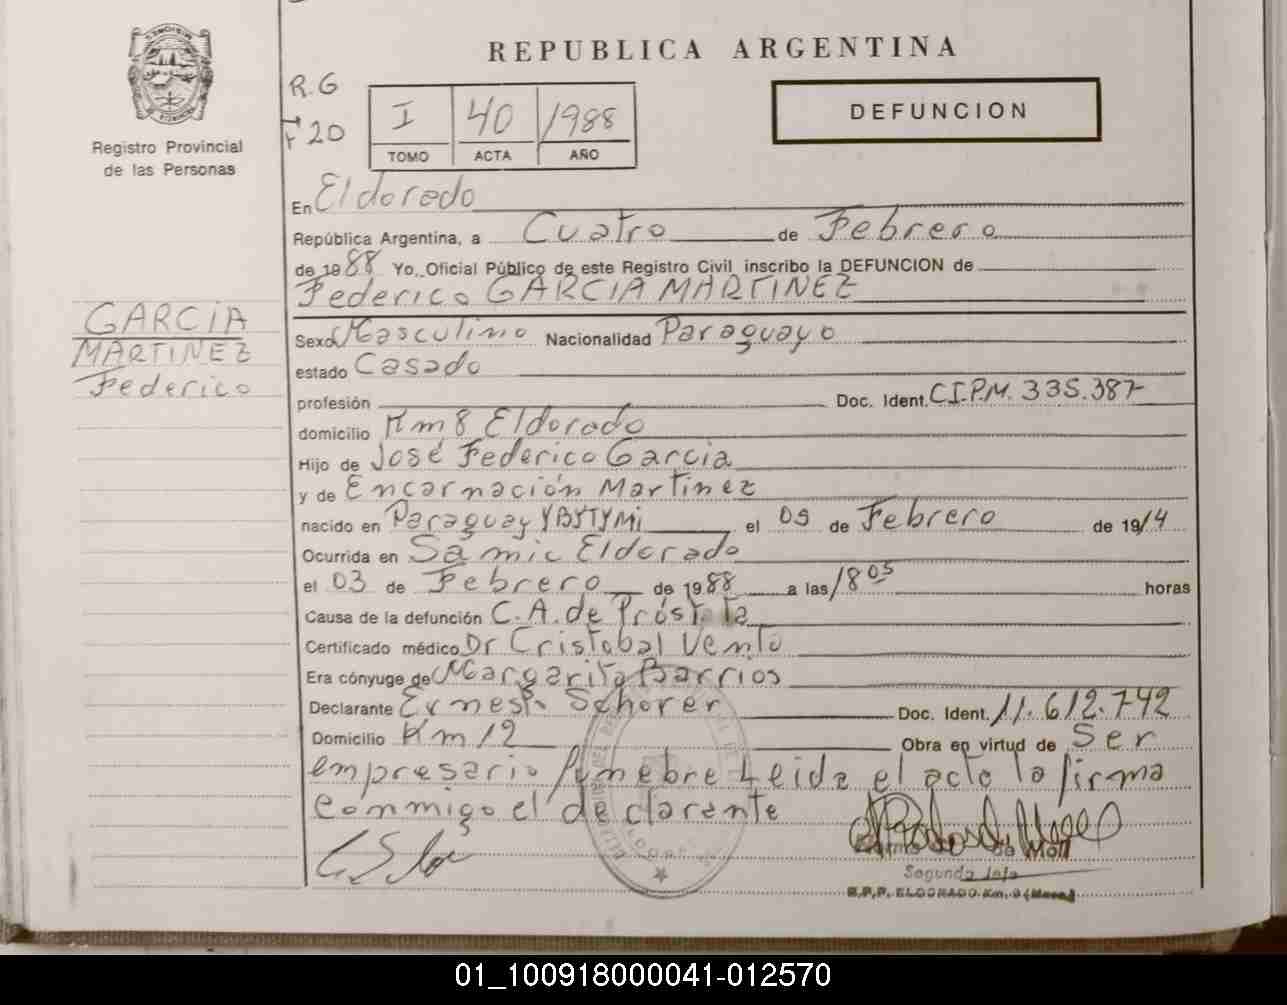 REPUBLICA ARGENTINA
Registro Provincial
de las Personas
R.G
Fº 20
I 40 1988
TOMO ACTA AÑO
DEFUNCION
En Eldorado
República Argentina, a Cuatro de Febrero
de 1988 Yo, Oficial Público de este Registro Civil inscribo la DEFUNCION de
Federico GARCIA MARTINEZ
GARCIA
MARTINEZ
Federico
Sexo Masculino Nacionalidad Paraguayo
estado Casado
profesión Doc. Ident. C.I.P.M. 335.387
domicilio Km 8 Eldorado
Hijo de José Federico Garcia
y de Encarnación Martinez
nacido en Paraguay YBYTYMi el 09 de Febrero de 1914
Ocurrida en Samic Eldorado
el 03 de Febrero de 1988 a las 18 05 horas
Causa de la defunción C.A. de Próstata
Certificado médico Dr Cristobal Vento
Era cónyuge de Margarita Barrios
Declarante Ernesto Schorer Doc. Ident. 11.612.742
Domicilio Km 12 Obra en virtud de Ser
empresario fúnebre Leida el acta la firma
conmigo el declarante
de Moll
Segundo Jefe
R.P.P. ELDORADO Km. 9 (Mnes)
01_100918000041-012570